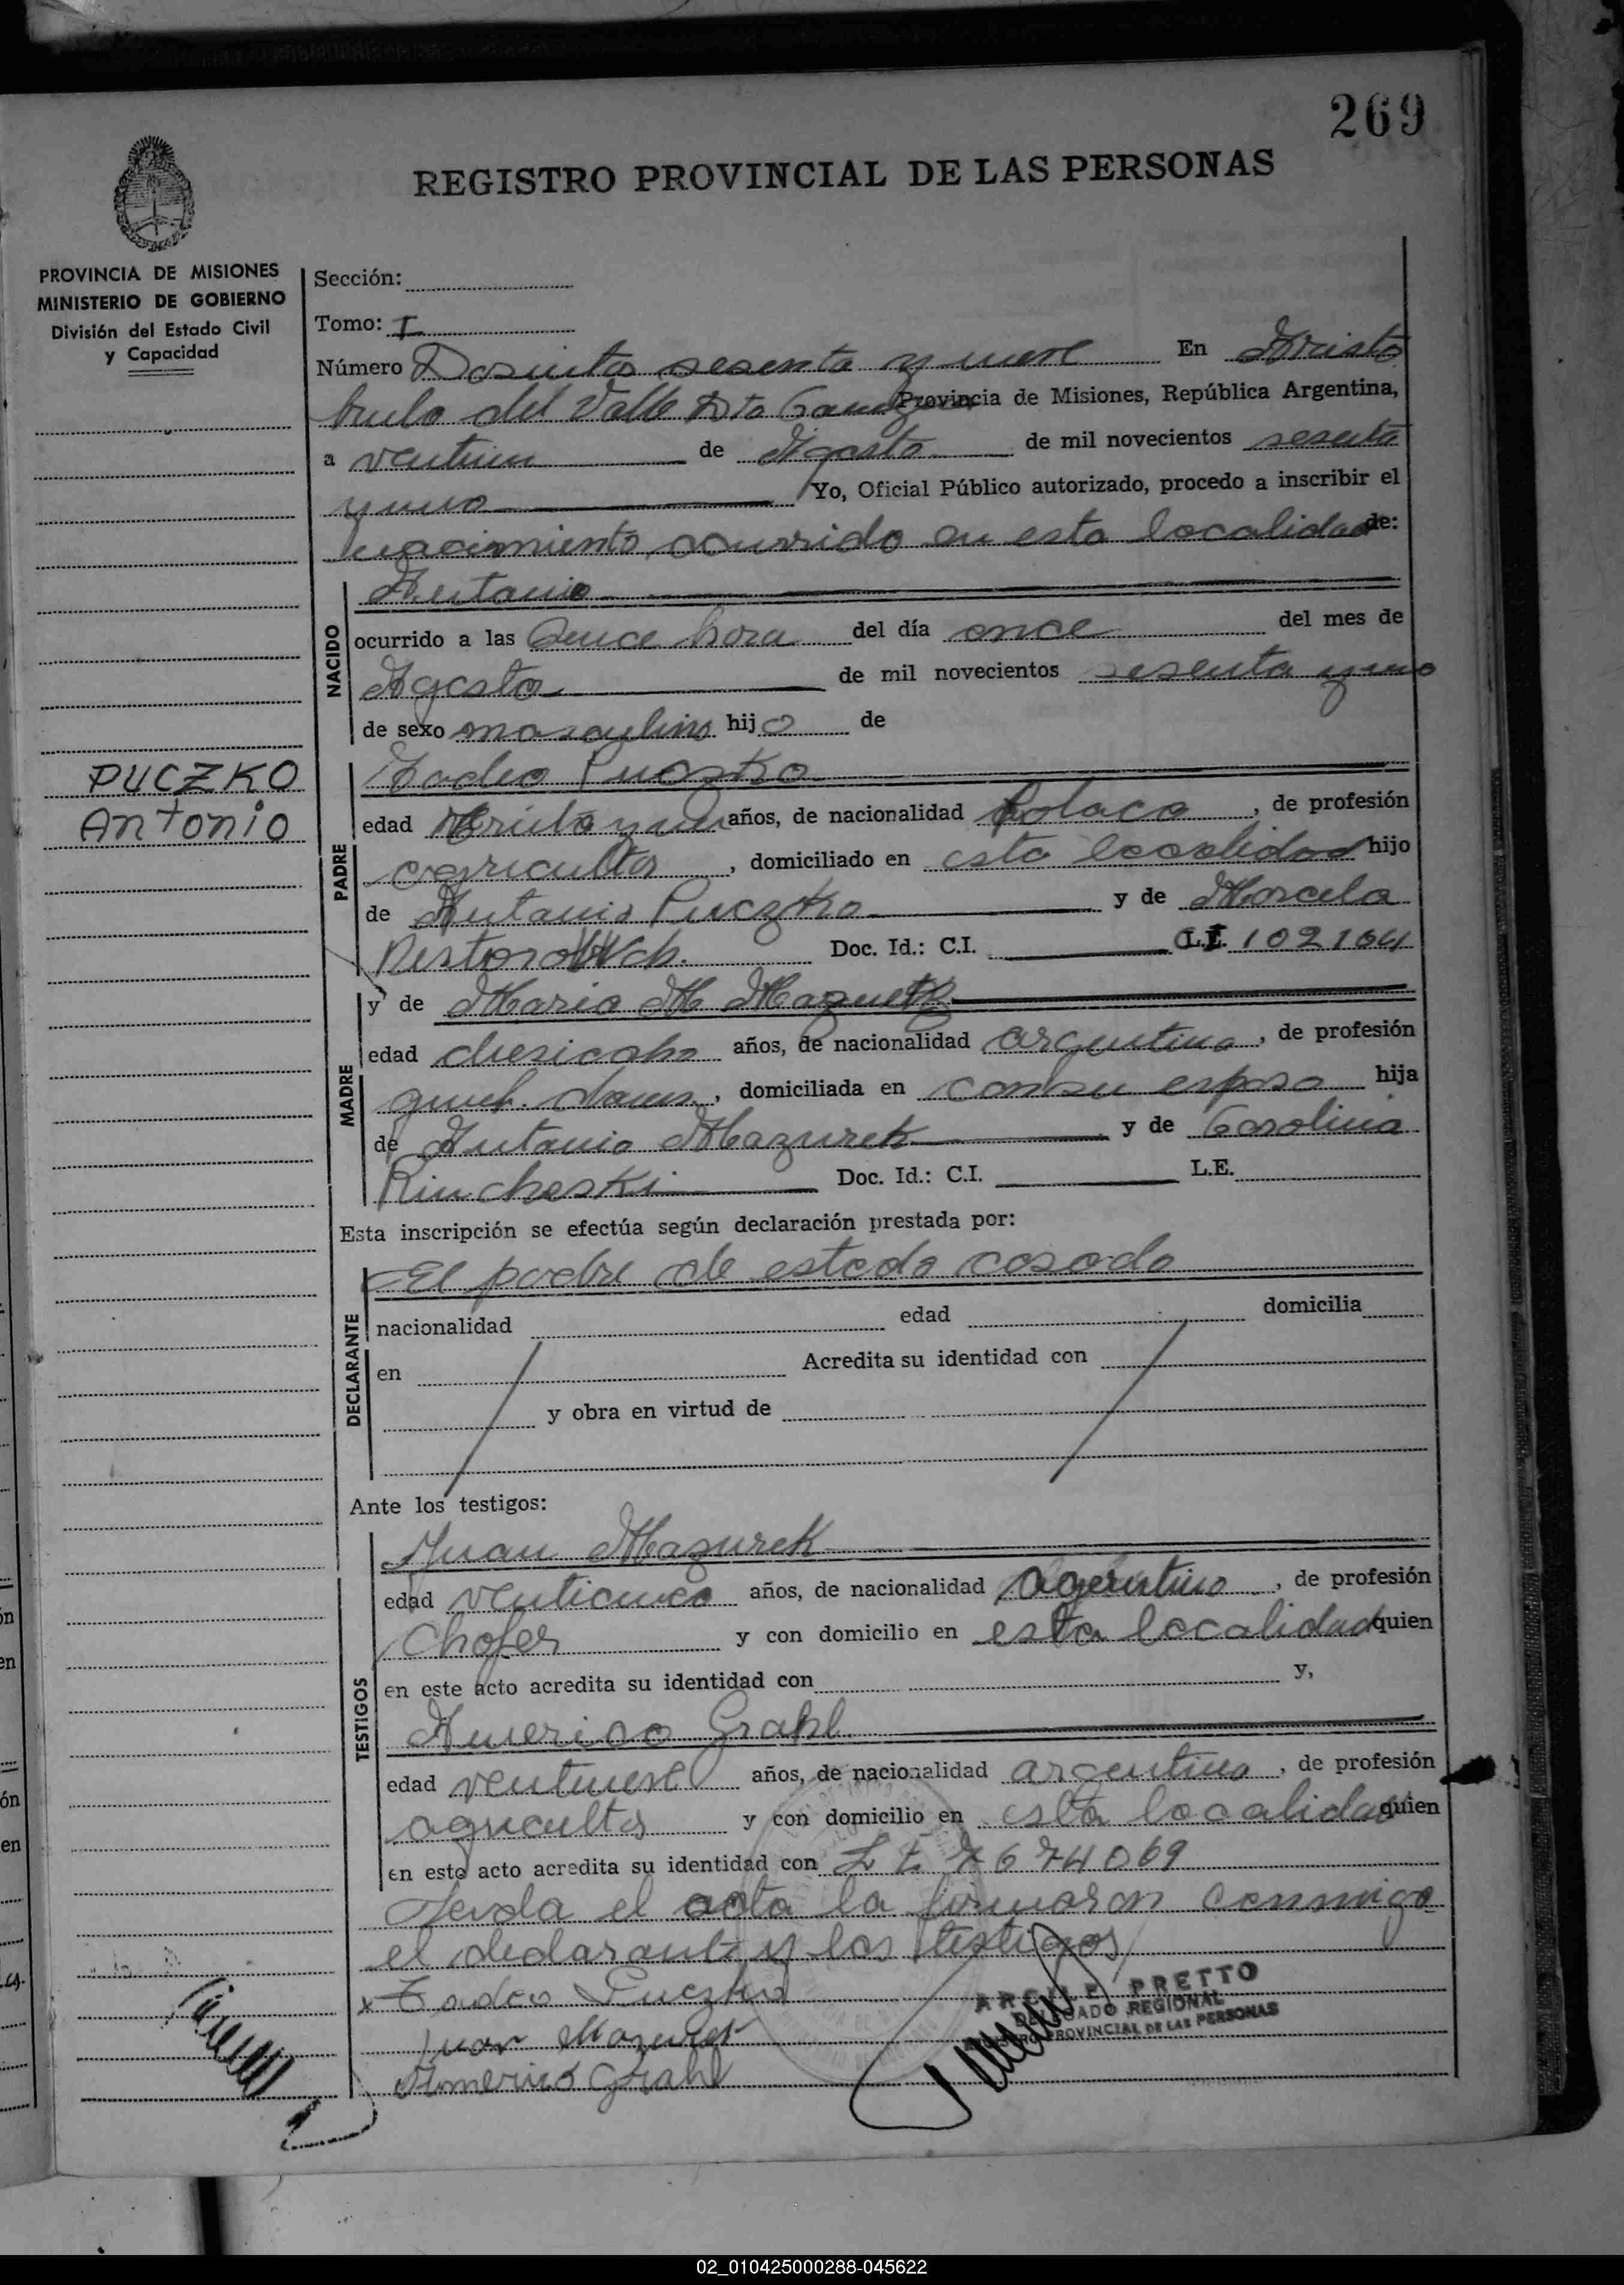 269
REGISTRO PROVINCIAL DE LAS PERSONAS
PROVINCIA DE MISIONES
MINISTERIO DE GOBIERNO
División del Estado Civil
y Capacidad
Sección:
Tomo: I
Número Dosientos sesenta y nueve En Aristo
bulo del Valle Dto Provincia de Misiones, República Argentina,
a de Agosto de mil novecientos sesenta
y uno Yo, Oficial Público autorizado, procedo a inscribir el
nacimiento ocurrido en esta localidad de:
NACIDO
Antonio
ocurrido a las hora del día once del mes de
Agosto de mil novecientos sesenta y uno
de sexo masculino hijo de
PUCZKO
Antonio
PADRE
Tadeo Puczko
edad años, de nacionalidad Polaca, de profesión
agricultor, domiciliado en esta localidad hijo
de Antonio Puczko y de Marcela
Doc. Id.: C.I. 102164
MADRE
y de Maria M Mazurek
edad años, de nacionalidad argentina, de profesión
domiciliada en con su esposo hija
de Antonio Mazurek y de Carolina
Rincheski Doc. Id.: C.I. L.E.
Esta inscripción se efectúa según declaración prestada por:
DECLARANTE
El padre de estado casado
nacionalidad edad domicilia
en Acredita su identidad con
y obra en virtud de
Ante los testigos:
TESTIGOS
Juan Mazurek
edad años, de nacionalidad , de profesión
Chofer y con domicilio en esta localidad quien
en este acto acredita su identidad con y,
Americo Grahl
edad años, de nacionalidad argentino, de profesión
agricultor y con domicilio en esta localidad quien
en este acto acredita su identidad con L E 7674069
el acta la firmaron conmigo
el declarante y los testigos
x Tadeo Puczko
Juan Mazurek
Americo Grahl
PRETTO
DELEGADO REGIONAL
PROVINCIAL DE LAS PERSONAS
02_010425000288-045622